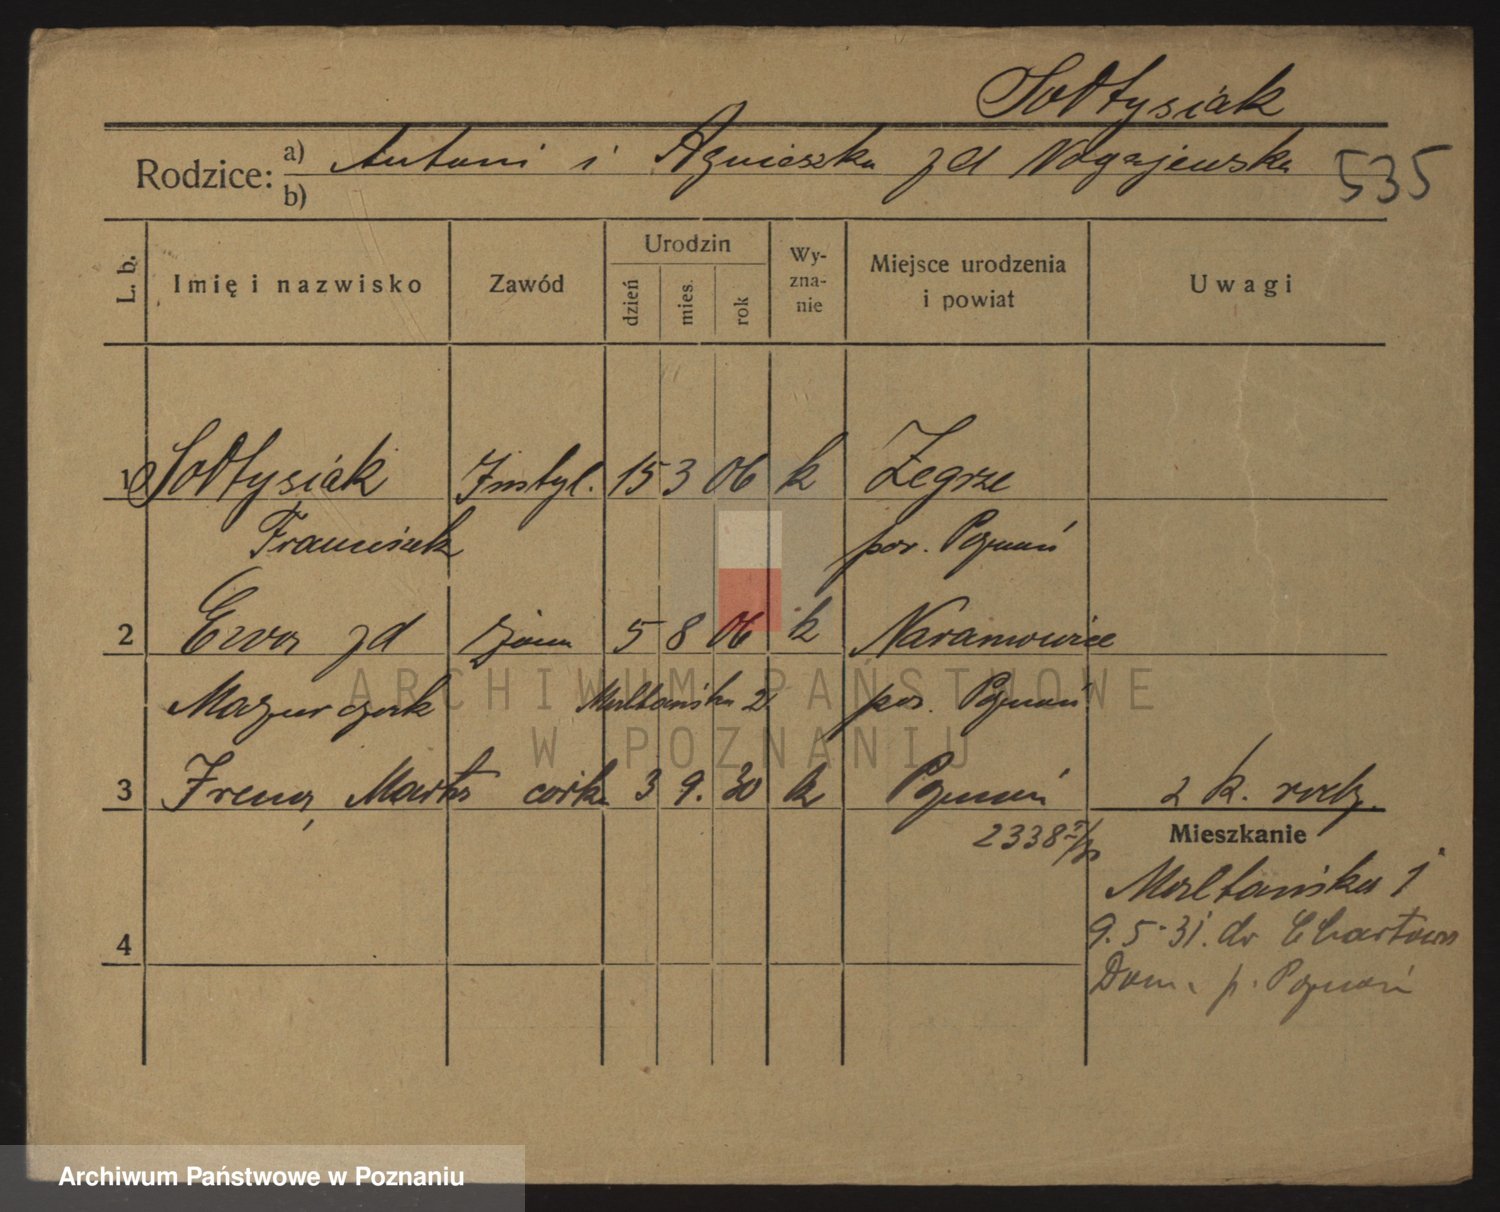 Sołtysiak
Rodzice: a) Antoni i Agnieszka zd Nogajewska 535
b)
L. b. Imię i nazwisko Zawód Urodzin dzień mies. rok Wy-zna-nie Miejsce urodzenia i powiat Uwagi
1 Sołtysiak Instyl. 15 3 06 k Żegrze
Franciszek pow. Poznań
2 Ewa zd żona 5 8 06 k Naramowice
Mazurczak Maltańska 2 pow. Poznań
3 Irena, Marta córka 3 9. 30 k Poznań 2 k. rodz.
2338
Mieszkanie
Maltańska 1
9.5.31. do Chartowo
4
Dom. p. Poznań
ARCHIWUM PAŃSTWOWE
W POZNANIU
Archiwum Państwowe w Poznaniu